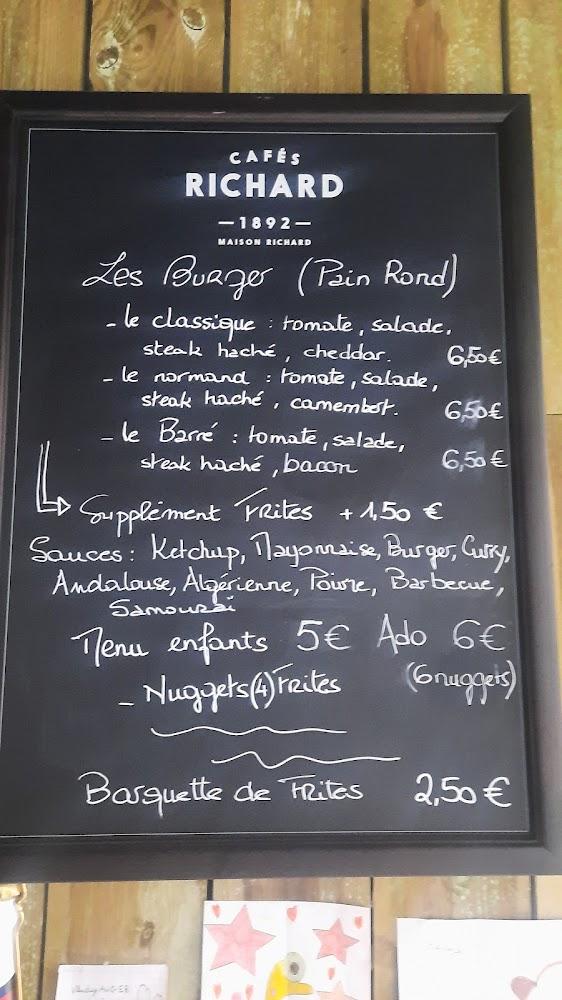 CAFÉS
RICHARD
—1892—
MAISON RICHARD
Les Burger (Pain Rond)
- le classique : tomate, salade,
steak haché, cheddar. 6,50€
- le normand : tomate, salade,
steak haché, camembert. 6,50€
- le Barré : tomate, salade,
steak haché, bacon 6,50€
Supplément Frites + 1,50 €
Sauces : Ketchup, Mayonnaise, Burger, Curry,
Andalouse, Algérienne, Poivre, Barbecue,
Samouraï
Menu enfants 5€ Ado 6€
- Nuggets(4) Frites (6 nuggets)
Barquette de Frites 2,50€